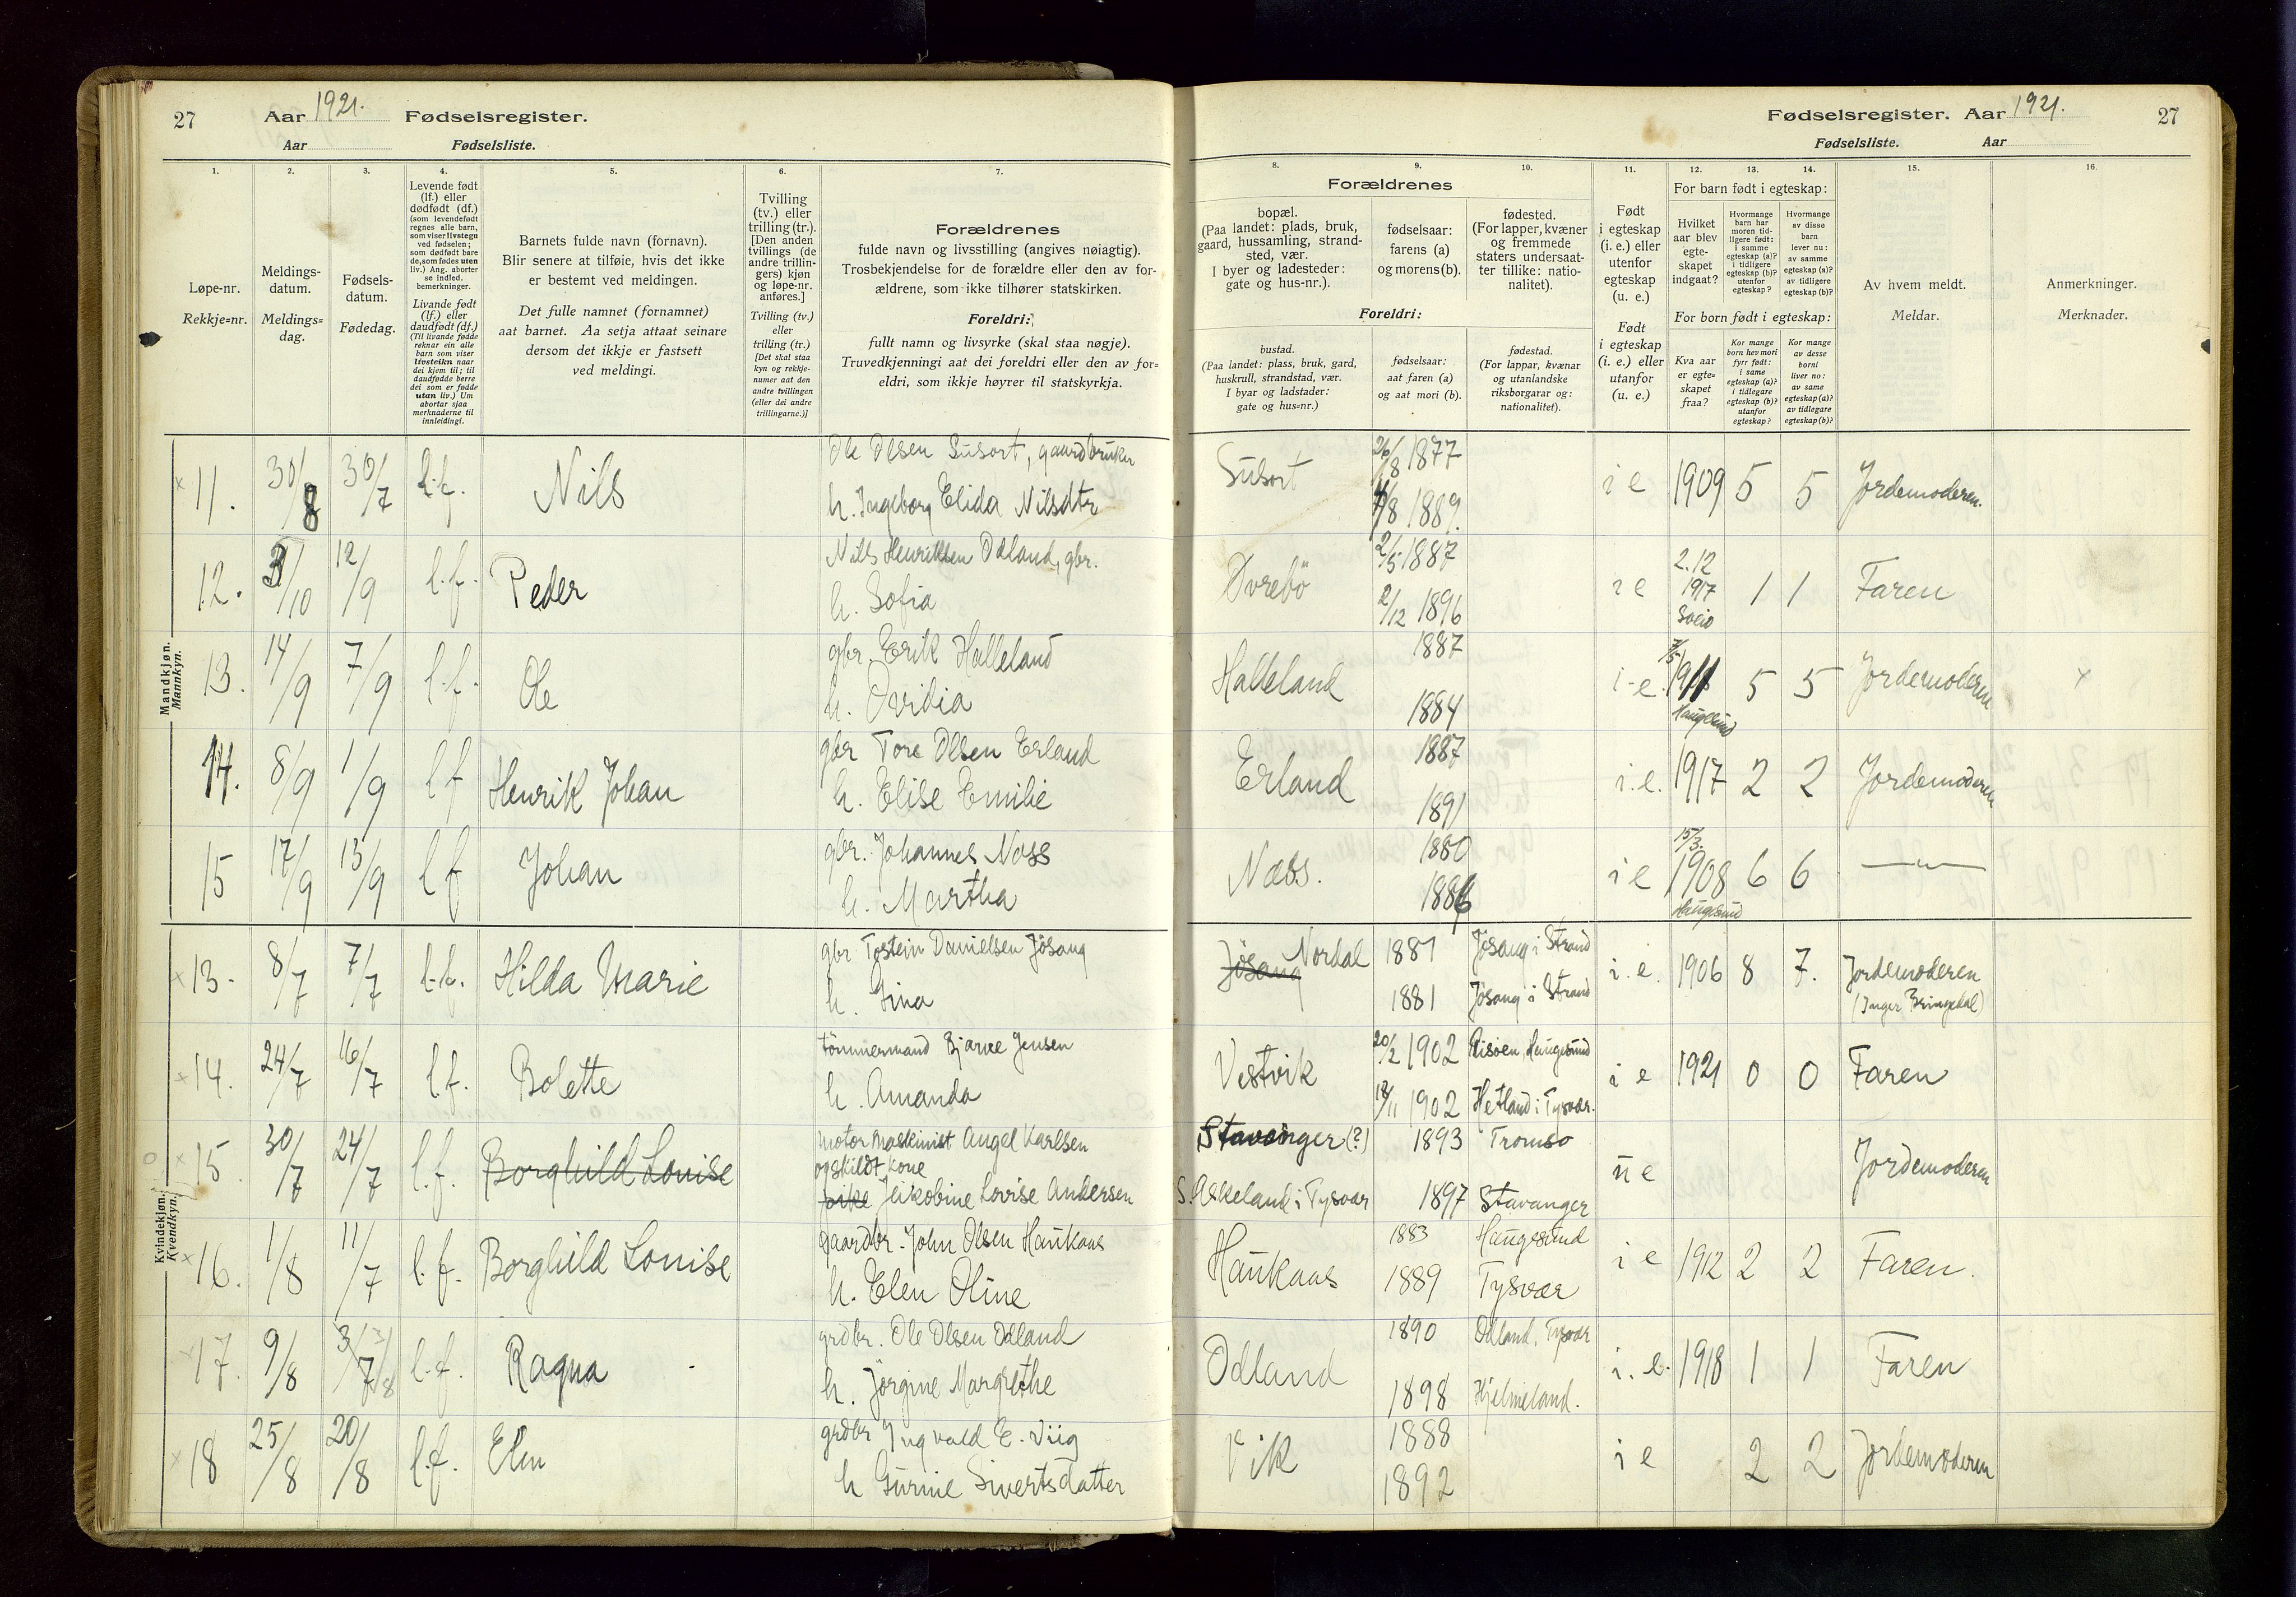 27
Aar 1921. Fødselsregister.
Aar Fødselsliste.
Fødselsregister. Aar 1921.
27
Fødselsliste. Aar
1.
Løpe-nr.
Rekkje=nr.
2.
Meldings-
datum.
Meldings=
dag.
3.
Fødsels-
datum.
Fødedag.
4.
Levende født
(lf.) eller
dødfødt (df.)
(som levendefødt
regnes alle barn,
som viser livstegn
ved fødselen;
som dødfødt bare
de, som fødes uten
liv.) Ang. aborter
se indled.
bemerkninger.
Livande født
(lf.) eller
daudfødt (df.)
(Til livande fødde
reknar ein alle
barn som viser
livsteikn naar
dei kjem til; til
daudfødde berre
dei som er fødde
utan liv.) Um
abortar sjaa
merknaderne til
innleidingi.
5.
Barnets fulde navn (fornavn).
Blir senere at tilføie, hvis det ikke
er bestemt ved meldingen.
Det fulle namnet (fornamnet)
aat barnet. Aa setja attaat seinare
dersom det ikkje er fastsett
ved meldingi.
6.
Tvilling
(tv.) eller
trilling (tr.).
[Den anden
tvillings (de
andre trillin-
gers) kjøn
og løpe-nr.
anføres.]
Tvilling (tv.)
eller
trilling (tr.)
[Det skal staa
kyn og rekkje-
numer aat den
andre tvillingen
(eller dei andre
trillingarne.)]
7.
Forældrenes
fulde navn og livsstilling (angives nøiagtig).
Trosbekjendelse for de forældre eller den av for-
ældrene, som ikke tilhører statskirken.
Foreldri:
fullt namn og livsyrke (skal staa nøgje).
Truvedkjenningi aat dei foreldri eller den av for=
eldri, som ikkje høyrer til statskyrkja.
8. 9. 10.
Forældrenes
bopæl.
(Paa landet: plads, bruk,
gaard, hussamling, strand-
sted, vær.
I byer og ladesteder:
gate og hus-nr.).
fødselsaar:
farens (a)
og morens (b).
fødested.
(For lapper, kvæner
og fremmede
staters undersaat-
ter tillike: natio-
nalitet).
Foreldri:
bustad.
(Paa landet: plass, bruk, gard,
huskrull, strandstad, vær.
I byar og ladstader:
gate og hus=nr.)
fødselsaar:
aat faren (a)
og aat mori (b).
fødestad.
(For lappar, kvænar
og utanlandske
riksborgarar og:
nationalitet).
11.
Født
i egteskap
(i. e.) eller
utenfor
egteskap
(u. e.)
Født
i egteskap
(i. e.) eller
utanfor
(u. e.)
12. 13. 14.
For barn født i egteskap:
Hvilket
aar blev
egte-
skapet
indgaat?
Hvormange
barn har
moren tid-
ligere født:
i samme
egteskap (a)?
i tidligere
egteskap (b)?
utenfor
egteskap?
Hvormange
av disse
barn
lever nu:
av samme
egteskap (a)?
av tidligere
egteskap (b)?
For born født i egteskap:
Kva aar
er egte=
skapet
fraa?
Kor mange
born hev mori
fyrr født:
i same
egteskap (a)?
i tidlegare
egteskap (b)?
utanfor
egteskap?
Kor mange
av desse
borni
liver no:
av same
egteskap (a)?
av tidlegare
egteskap (b)?
15.
Av hvem meldt.
Meldar.
16.
Anmerkninger.
Merknader.
Mandkjøn.
Mannkyn.
× 11. 30/8 30/7 l.f. Nils
Ole Olsen Susort, gaardbruker
h. Ingeborg Elida Nilsdtr
Susort 26/8 1877
4/8 1889.
i e 1909 5 5 Jordemoderen.
12. 3/10 12/9 l.f. Peder
Nils Henriksen Odland, gbr.
h. Sofia
Øvrebö 2/5 1887
2/12 1896
i e 2.12 1917 1 1 Faren
13. 14/9 7/9 l.f. Ole
gbr. Erik Halleland
h. Ovidia
Halleland 1887
1884
i.e. 7/5 1911 Haugesund 5 5 Jordemoderen ×
14. 8/9 1/9 l f Henrik Johan
gbr Tore Olsen Erland
h. Elise Emilie
Erland 1887
1891
i.e. 1917 2 2 Jordemoderen
15 17/9 13/9 l f Johan
gbr. Johannes Næss
h. Martha
Næss. 1880
1886
i e 15/3. 1908 Haugesund 6 6 —"—
Kvindekjøn.
Kvendkyn.
× 13. 8/7 7/7 l.f. Hilda Marie
gbr Tostein Danielsen Jösang
h. Gina
Jösang Nordal 1881 Jösang i Strand
1881 Jösang i Strand
i.e. 1906 8 7. Jordemoderen
(Inger Bringedal)
× 14. 24/7 16/7 l.f. Bolette
tömmermand Bjarne Jensen
h. Amanda
Vestvik 20/2 1902 Risöen, Haugesund
18/11 1902 Hetland i Tysvær.
i e 1921 0 0 Faren
○ × 15. 30/7 24/7 l.f. Borghild Louise
motormaskinist Angel Karlsen
fraskildt kone
pike Jakobine Lovise Andersen
Stavanger (?) 1893 Tromsö
S. Askeland i Tysvær 1897 Stavanger
u e Jordemoderen
× 16. 1/8 11/7 l.f. Borghild Louise
gaardbr. John Olsen Haukaas
h. Elen Oline
Haukaas 1883 Haugesund
1889 Tysvær
i e 1912 2 2 Faren.
× 17. 9/8 3/7 3/8 l.f. Ragna
grdbr. Ole Olsen Odland
h. Jörgine Margrethe
Odland 1890 Odland, Tysvær
1898 Hjelmeland.
i.e. 1918 1 1 Faren
× 18 25/8 20/8 l.f. Elin
grdbr Yngvald E. Viig
h Gurine Sivertsdatter
Vik 1888
1892
i e 2 2 Jordemoderen